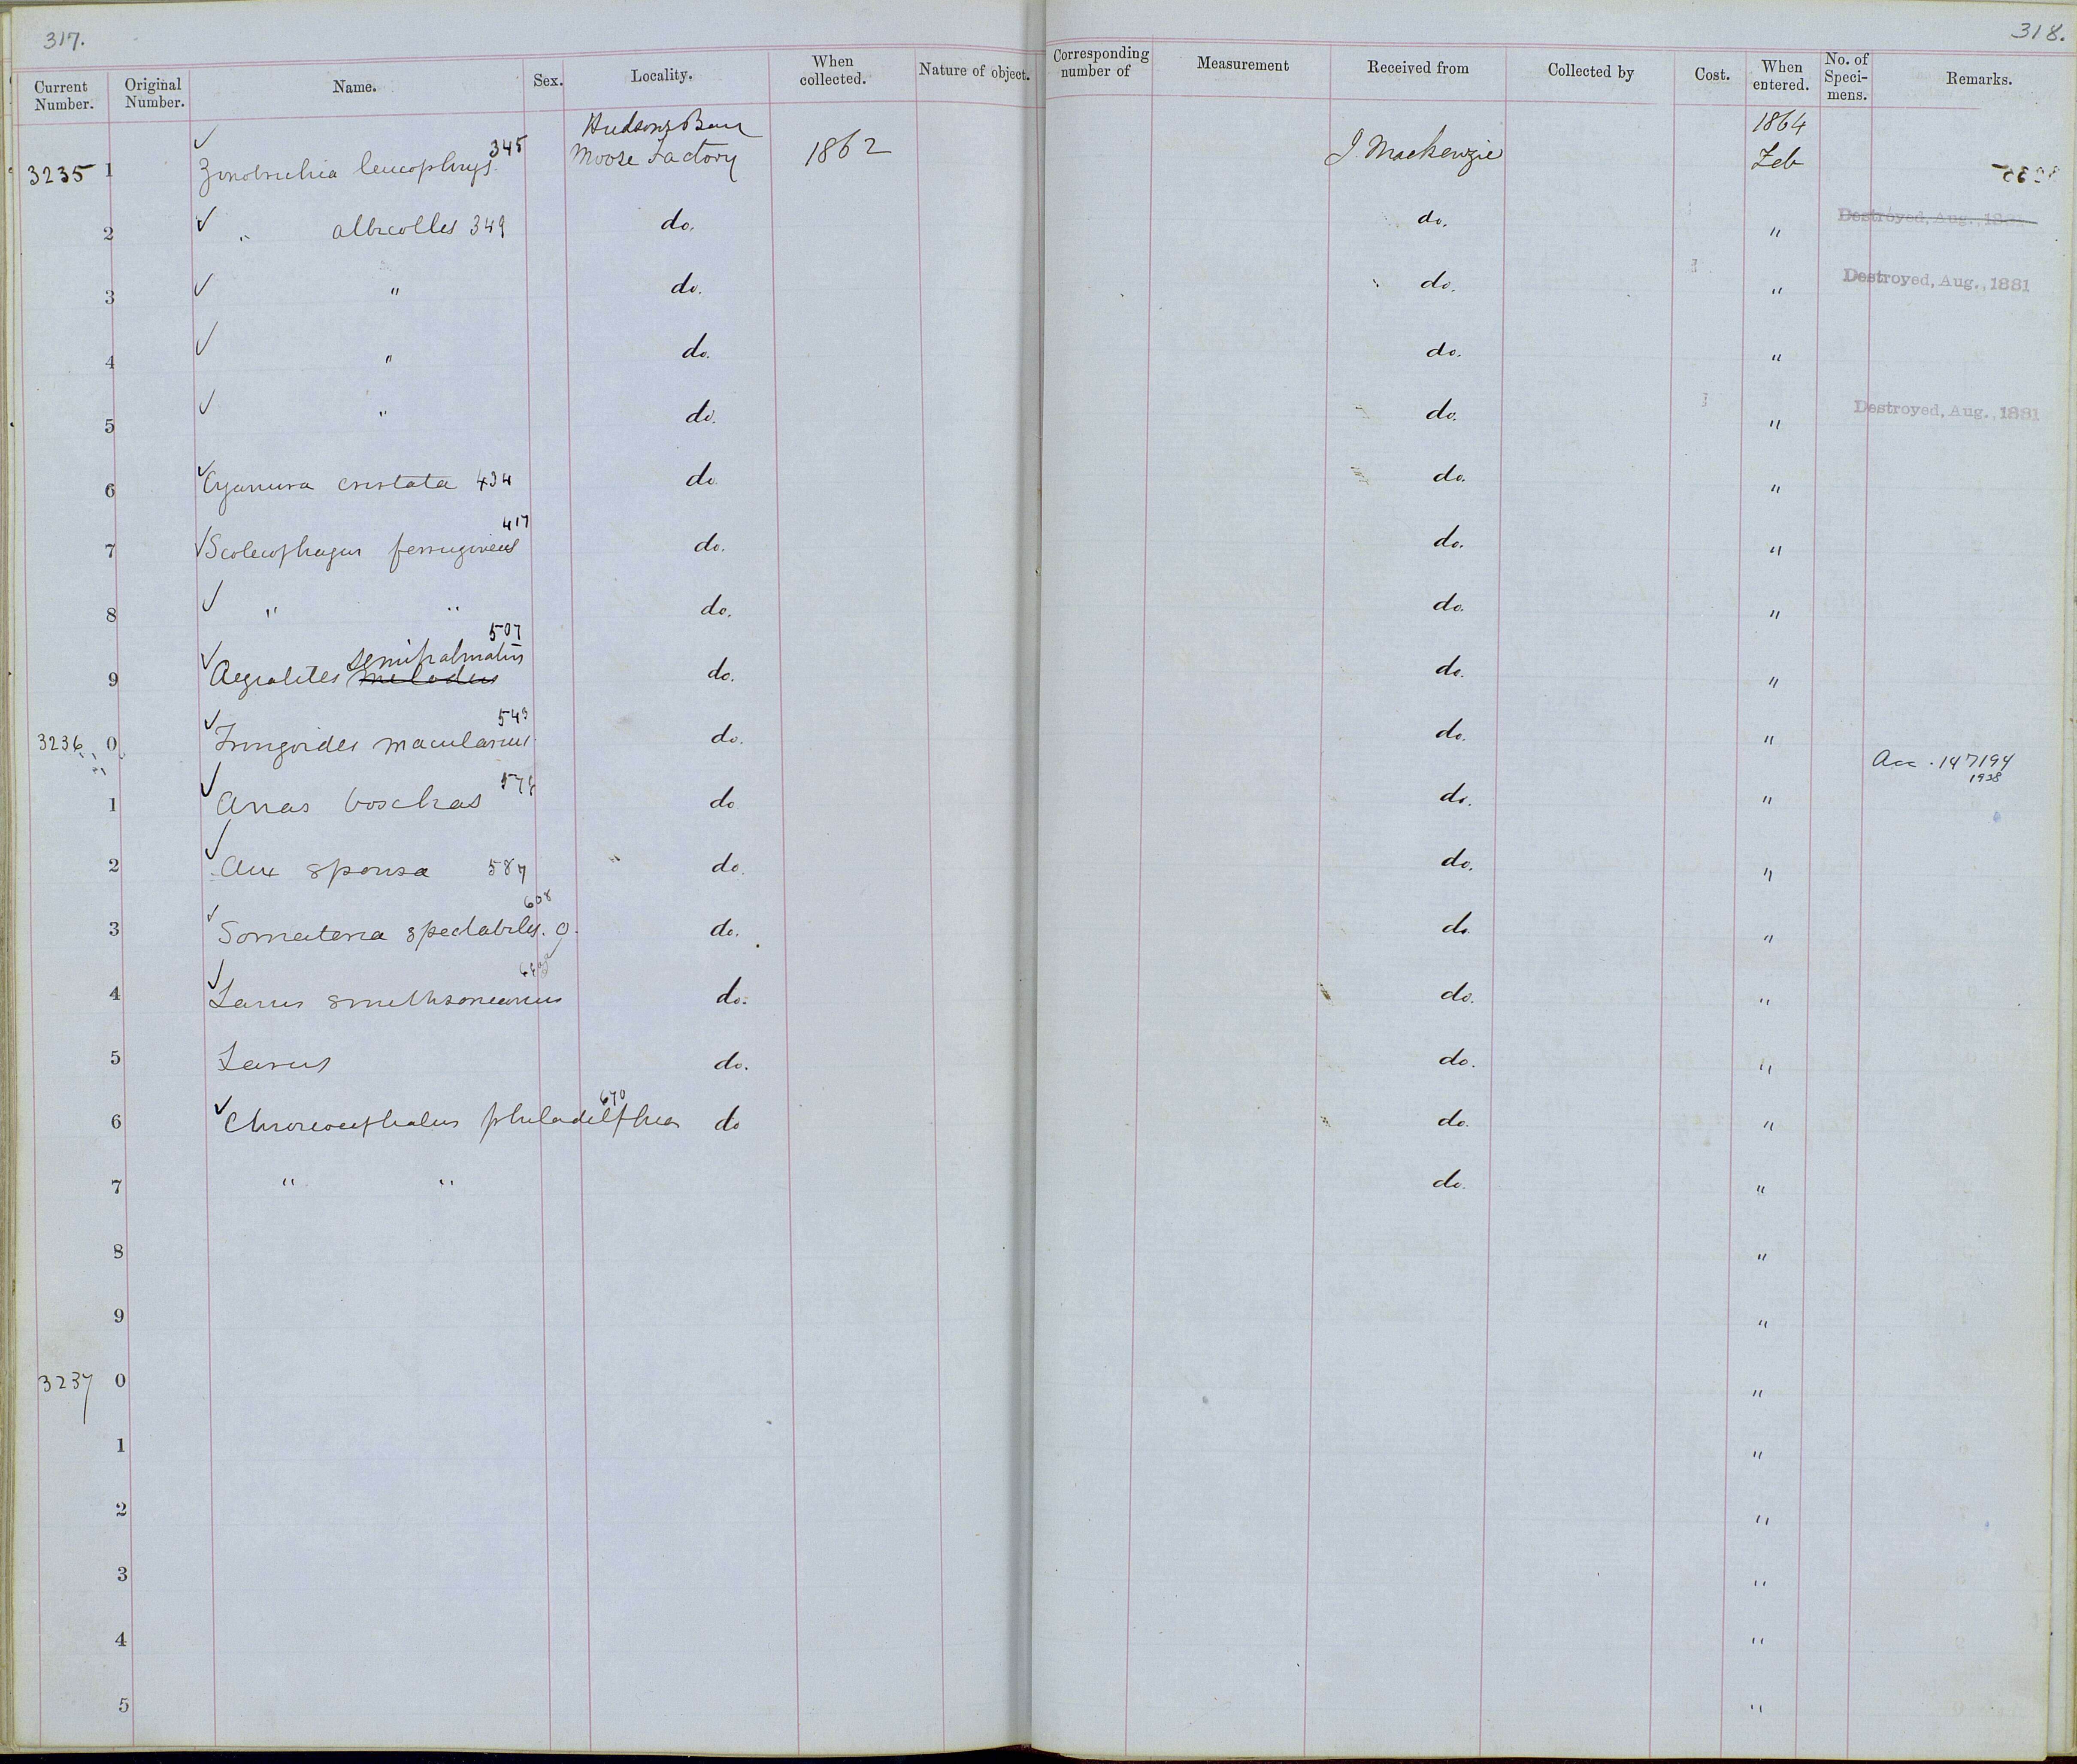 317. 318.
Current Number. Original Number. Name. Sex. Locality. When collected. Nature of object. Corresponding number of Measurement Received from Collected by Cost. When entered. No. of Specimens. Remarks.
Hudsons Bay 1864
3235 1 ✓ Zonotrichia leucophrys 345 Moose Factory 1862 J. Mackenzie Feb
2 ✓ " albicolles 349 do. do. " Destroyed, Aug., 1881
3 ✓ " do. do. " Destroyed, Aug., 1881
4 ✓ " do. do. "
5 ✓ " do. do. " Destroyed, Aug., 1881
6 ✓ Cyanura cristata 434 do do. "
7 ✓ Scolecophagus ferrugineus 417 do. do. "
8 ✓ " " do. do. "
9 ✓ Aegialites melodus semipalmatus 507 do. do. "
3236 0 ✓ Tringoides macularius 543 do. do. "
Acc. 147194
1938
1 ✓ Anas boschas do do. "
2 ✓ Aix sponsa 587 do. do. "
3 ✓ Somateria spectabilis. 608 do. do. "
4 ✓ Larus smithsonianus do. do. "
5 Larus do. do. "
6 ✓ Chroicocephalus philadelphia 670 do do. "
7 " " do. "
8 "
9 "
3237 0 "
1 "
2 "
3 "
4 "
5 "